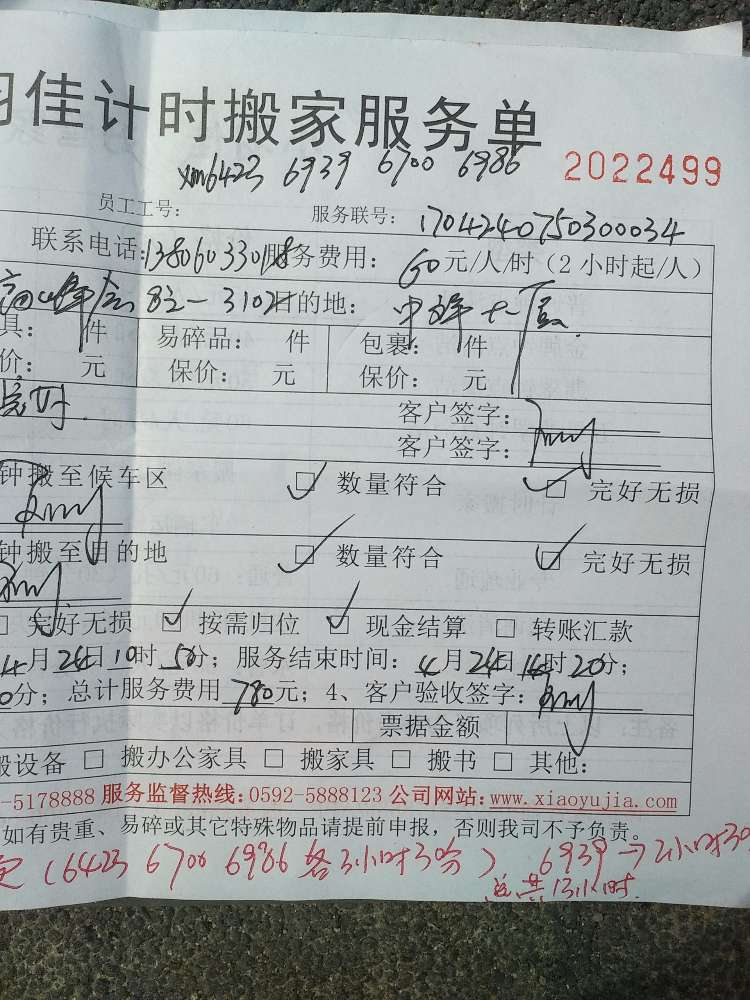 佳计时搬家服务单
xm6423 6939 6700 6986 2022499
员工工号： 服务联号：1704240750300034
联系电话： 服务费用：60元/人/时（2小时起/人）
8-3102 目的地：
具： 件 易碎品： 件 包裹： 件
价： 元 保价： 元 保价： 元
完好
客户签字：
客户签字：
钟搬至候车区 ☑ 数量符合 ☑ 完好无损
钟搬至目的地 ☑ 数量符合 ☑ 完好无损
完好无损 ☑ 按需归位 ☑ 现金结算 □ 转账汇款
4月24日10时50分；服务结束时间：4月24日14时20分；
0分；总计服务费用780元；4、客户验收签字：
票据金额
搬设备 □ 搬办公家具 □ 搬家具 □ 搬书 □ 其他：
-5178888 服务监督热线：0592-5888123 公司网站：www.xiaoyujia.com
如有贵重、易碎或其它特殊物品请提前申报，否则我司不予负责。
（6423 6700 6986 各3小时30分） 6939→2小时30
总共13小时